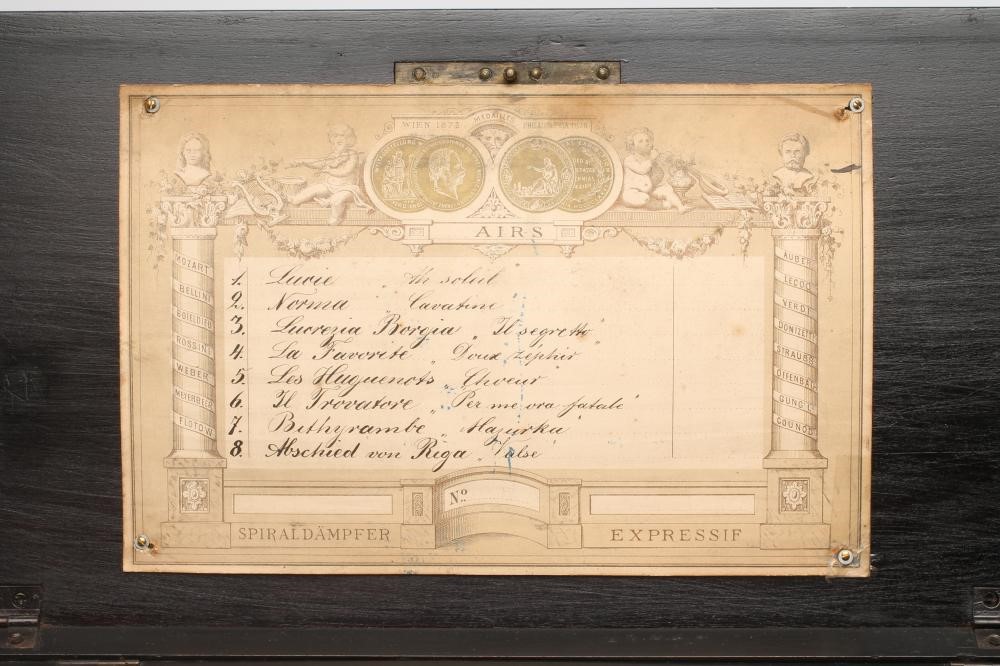 WIEN 1873 MEDAILLES PHILADELPHIA 1876
AIRS
MOZART
BELLINI
BOIELDIEU
ROSSINI
WEBER
MEYERBEER
FLOTOW
AUBER
LECOQ
VERDI
DONIZETTI
STRAUSS
OFFENBACH
GUNG'L
GOUNOD
1. Lucie „
2. Norma „ Cavatine
3. Lucrezia Borgia „ Il segretto "
4. La Favorite „ Doux zéphir "
5. Les Huguenots „ Choeur "
6. Il Trovatore „ Per me ora fatale "
7. Bithyrambe „ Mazurka "
8. Abschied von Riga „ Valse "
No.
SPIRALDÄMPFER
EXPRESSIF